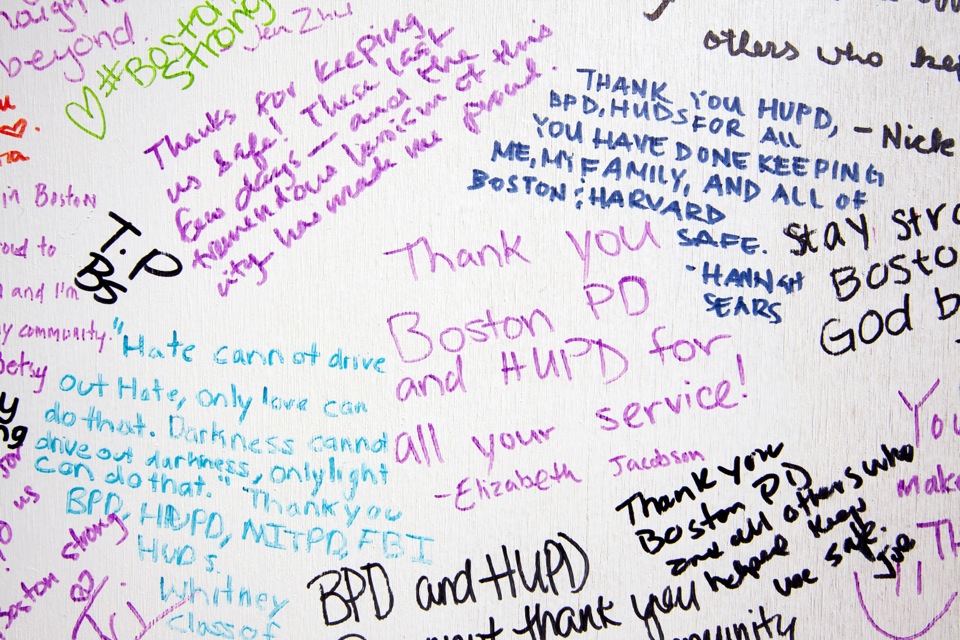 beyond.
#Boston
Strong
Jen Zhu
Thanks for keeping
us safe! These last
few days — and the
tremendous heroism of this
city has made me proud.
others who
THANK YOU HUPD,
BPD, HUDS FOR ALL
YOU HAVE DONE KEEPING
ME, MY FAMILY, AND ALL OF
BOSTON & HARVARD
SAFE.
- HANNAH
SEARS
- Nick
in Boston
to
and I'm
community.
Betsy
T.P
BS
Stay
God
Thank you
Boston PD
and HUPD for
all your service!
- Elizabeth Jacobson
"Hate cannot drive
out Hate, only love can
do that. Darkness cannot
drive out darkness, only light
can do that." Thank you
BPD, HUPD, MITPD, FBI
HUDS.
Whitney
Class of
us
Boston strong
Thank you
Boston PD
and all others who
helped keep
us safe.
Joe
BPD and HUPD
thank you